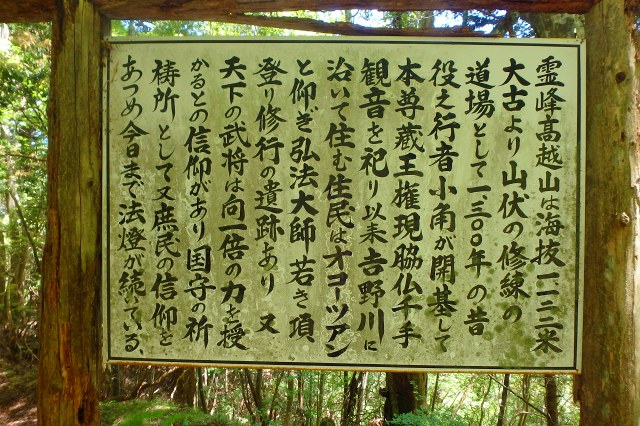 霊峰高越山は海抜一一二二米
大古より山伏の修練の
道場として一三〇〇年の昔
役之行者小角が開基して
本尊蔵王権現脇仏千手
観音を祀り以来吉野川に
沿いて住む住民はオコーツアン
と仰ぎ弘法大師若き頃
登り修行の遺跡あり又
天下の武将は向一倍の力を授
かるとの信仰があり国守の祈
祷所として又庶民の信仰を
あつめ今日まで法燈が続いている、